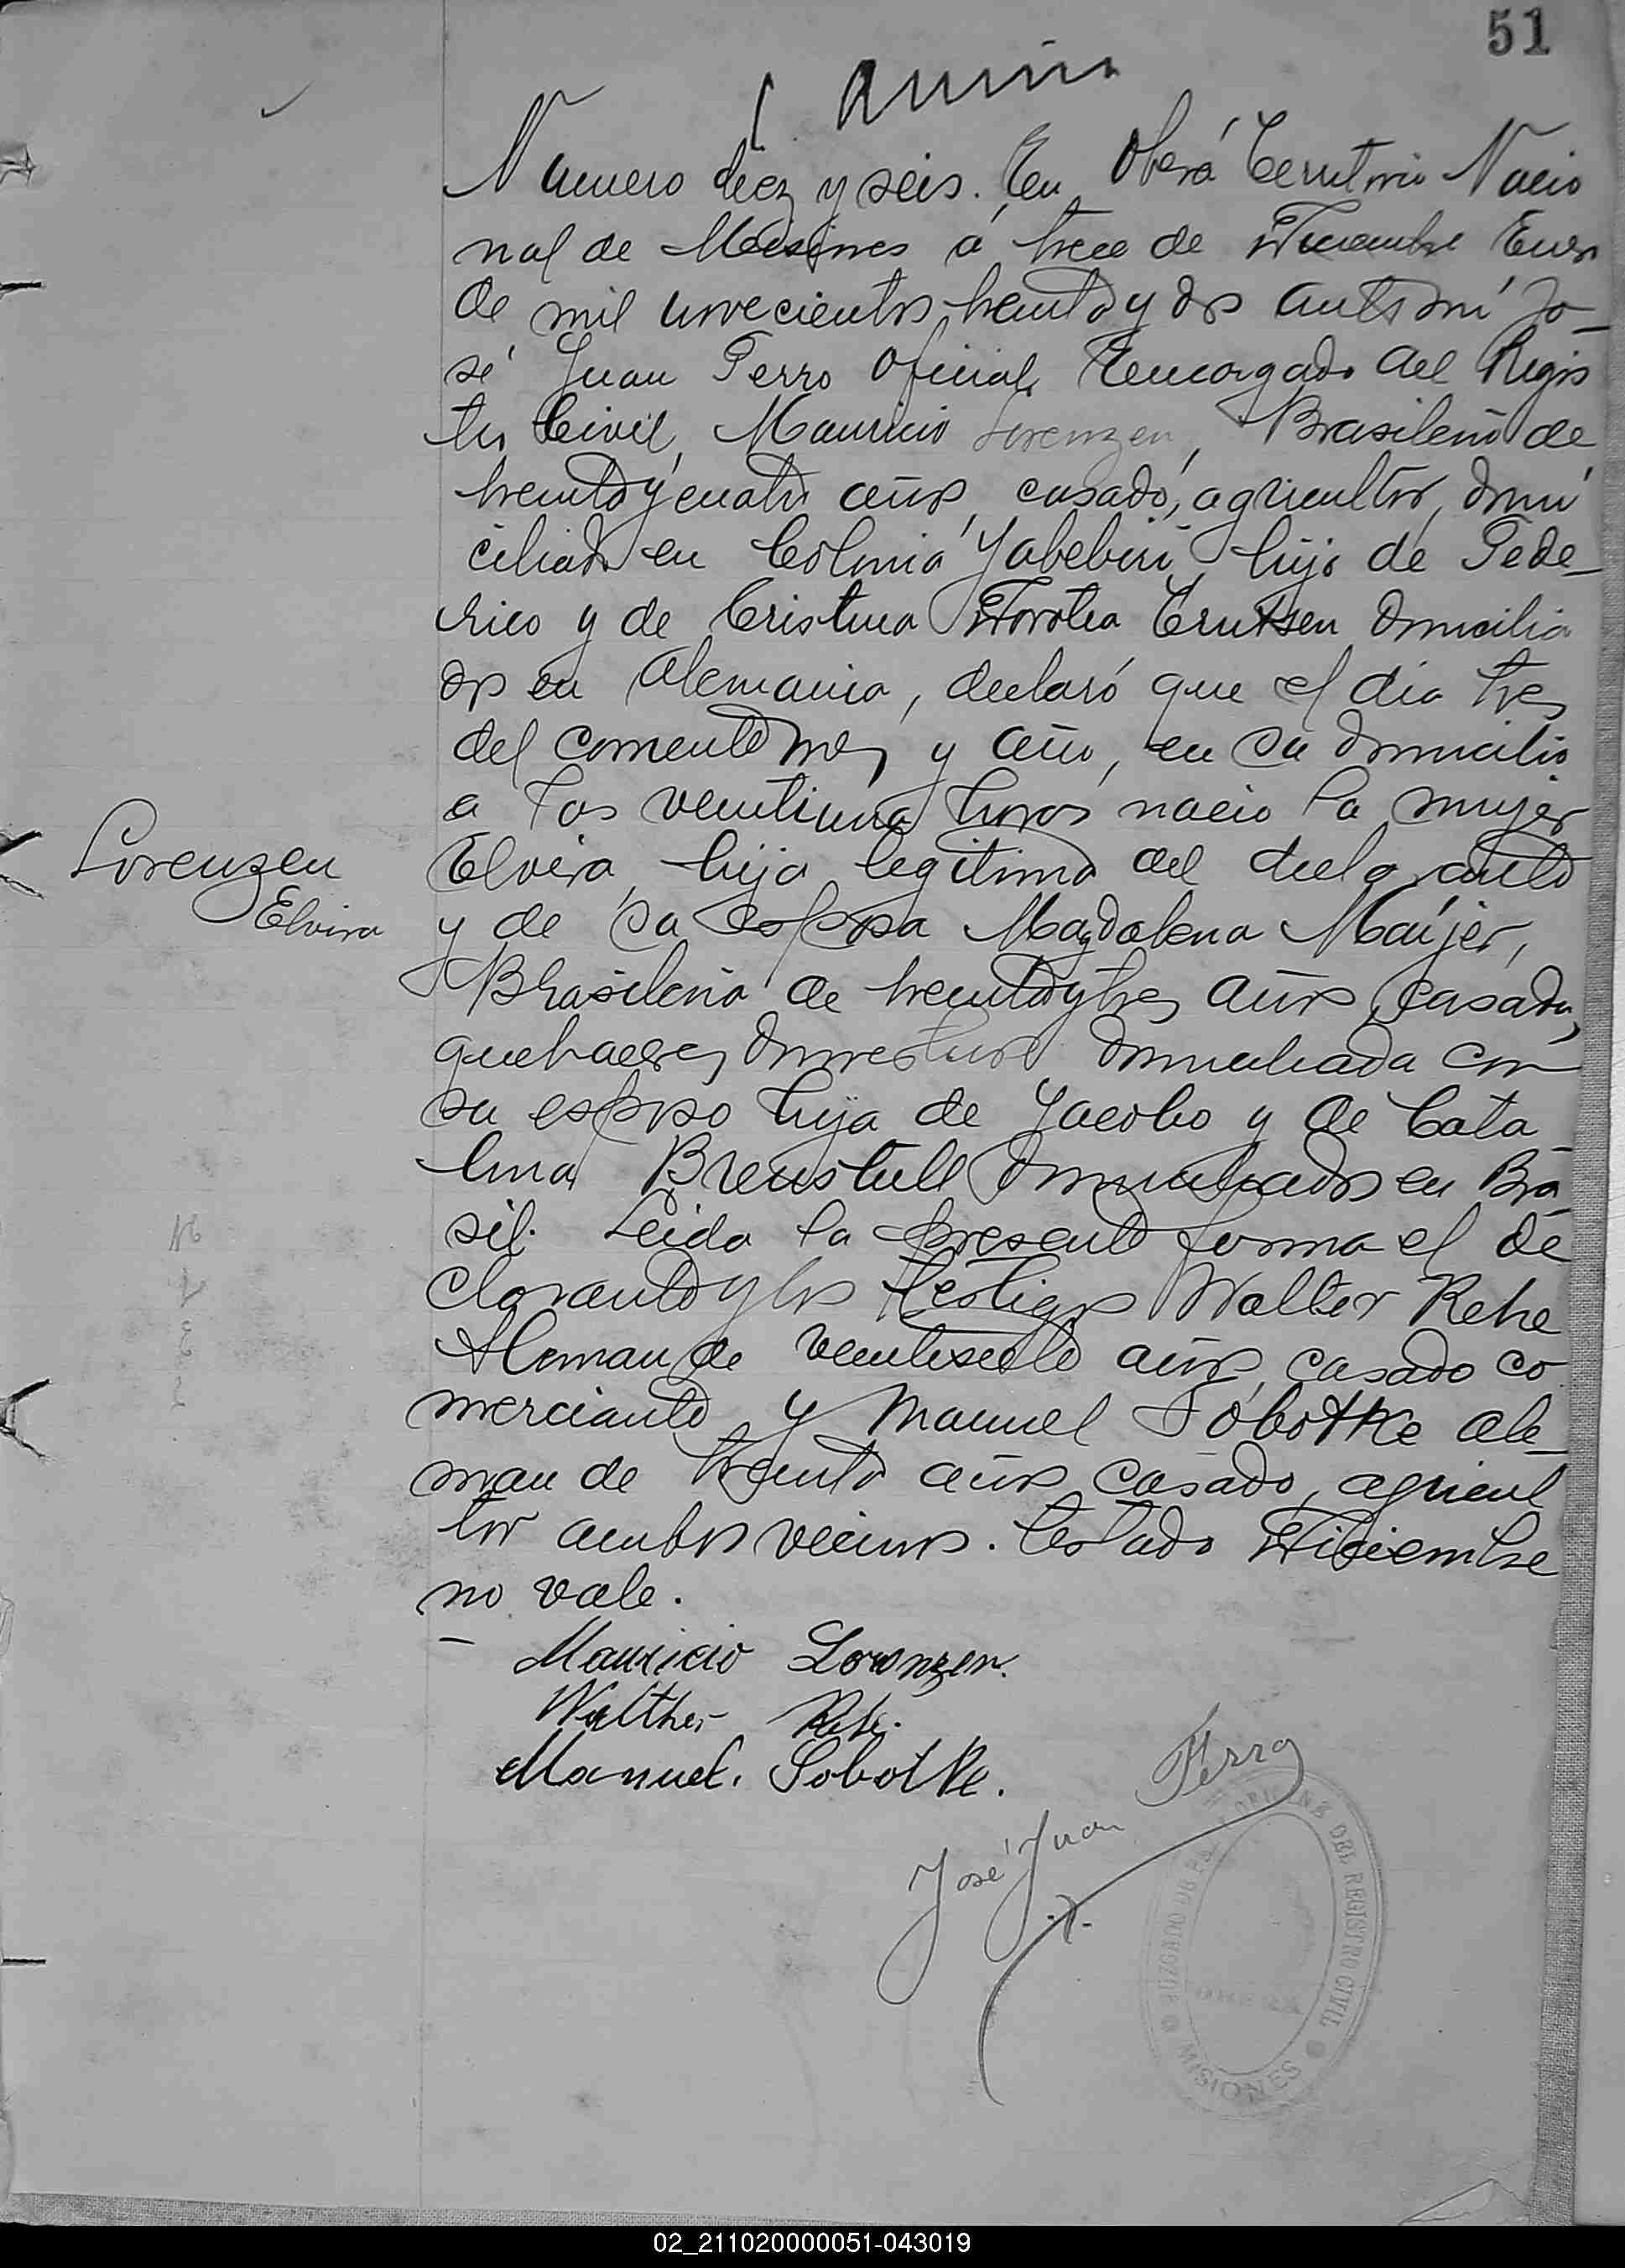 51
Numero diez y seis. En Oberá Territorio Nacio
nal de Misiones á trece de Diciembre Enero
de mil novecientos treinta y dos ante mi Jo-
sé Juan Ferro Oficial Encargado del Regis
tro Civil, Mauricio Lorenzen, Brasileño de
treinta y cuatro años, casado, agricultor, domi
ciliado en Colonia Yabebiri, hijo de Fede-
rico y de Cristina Dorotea Erutsen domicilia
dos en Alemania, declaró que el dia tres
del corriente mes y año, en su domicilio
a las veintiuna horas nacio la mujer
Lorenzen
Elvira
Elvira, hija legitima del declarante
y de su esposa Magdalena Maijer,
Brasileña de treinta y tres años, casada,
quehaceres domesticos domiciliada con
su esposo hija de Jacobo y de Cata-
lina Breustull domiciliados en Bra-
sil. Leida la presente forma el de
clarante y los testigos Walter Rehe
Aleman de veintisiete años, casado co
merciante y Manuel Sobotke ale-
man de treinta años casado, agricul
tor ambos vecinos. Testado Diciembre
no vale.
Mauricio Lorenzen.
Walther Rehe.
Manuel. Sobotke.
José Juan Ferro
JUZGADO DE PAZ DEL REGISTRO CIVIL
MISIONES
02_211020000051-043019